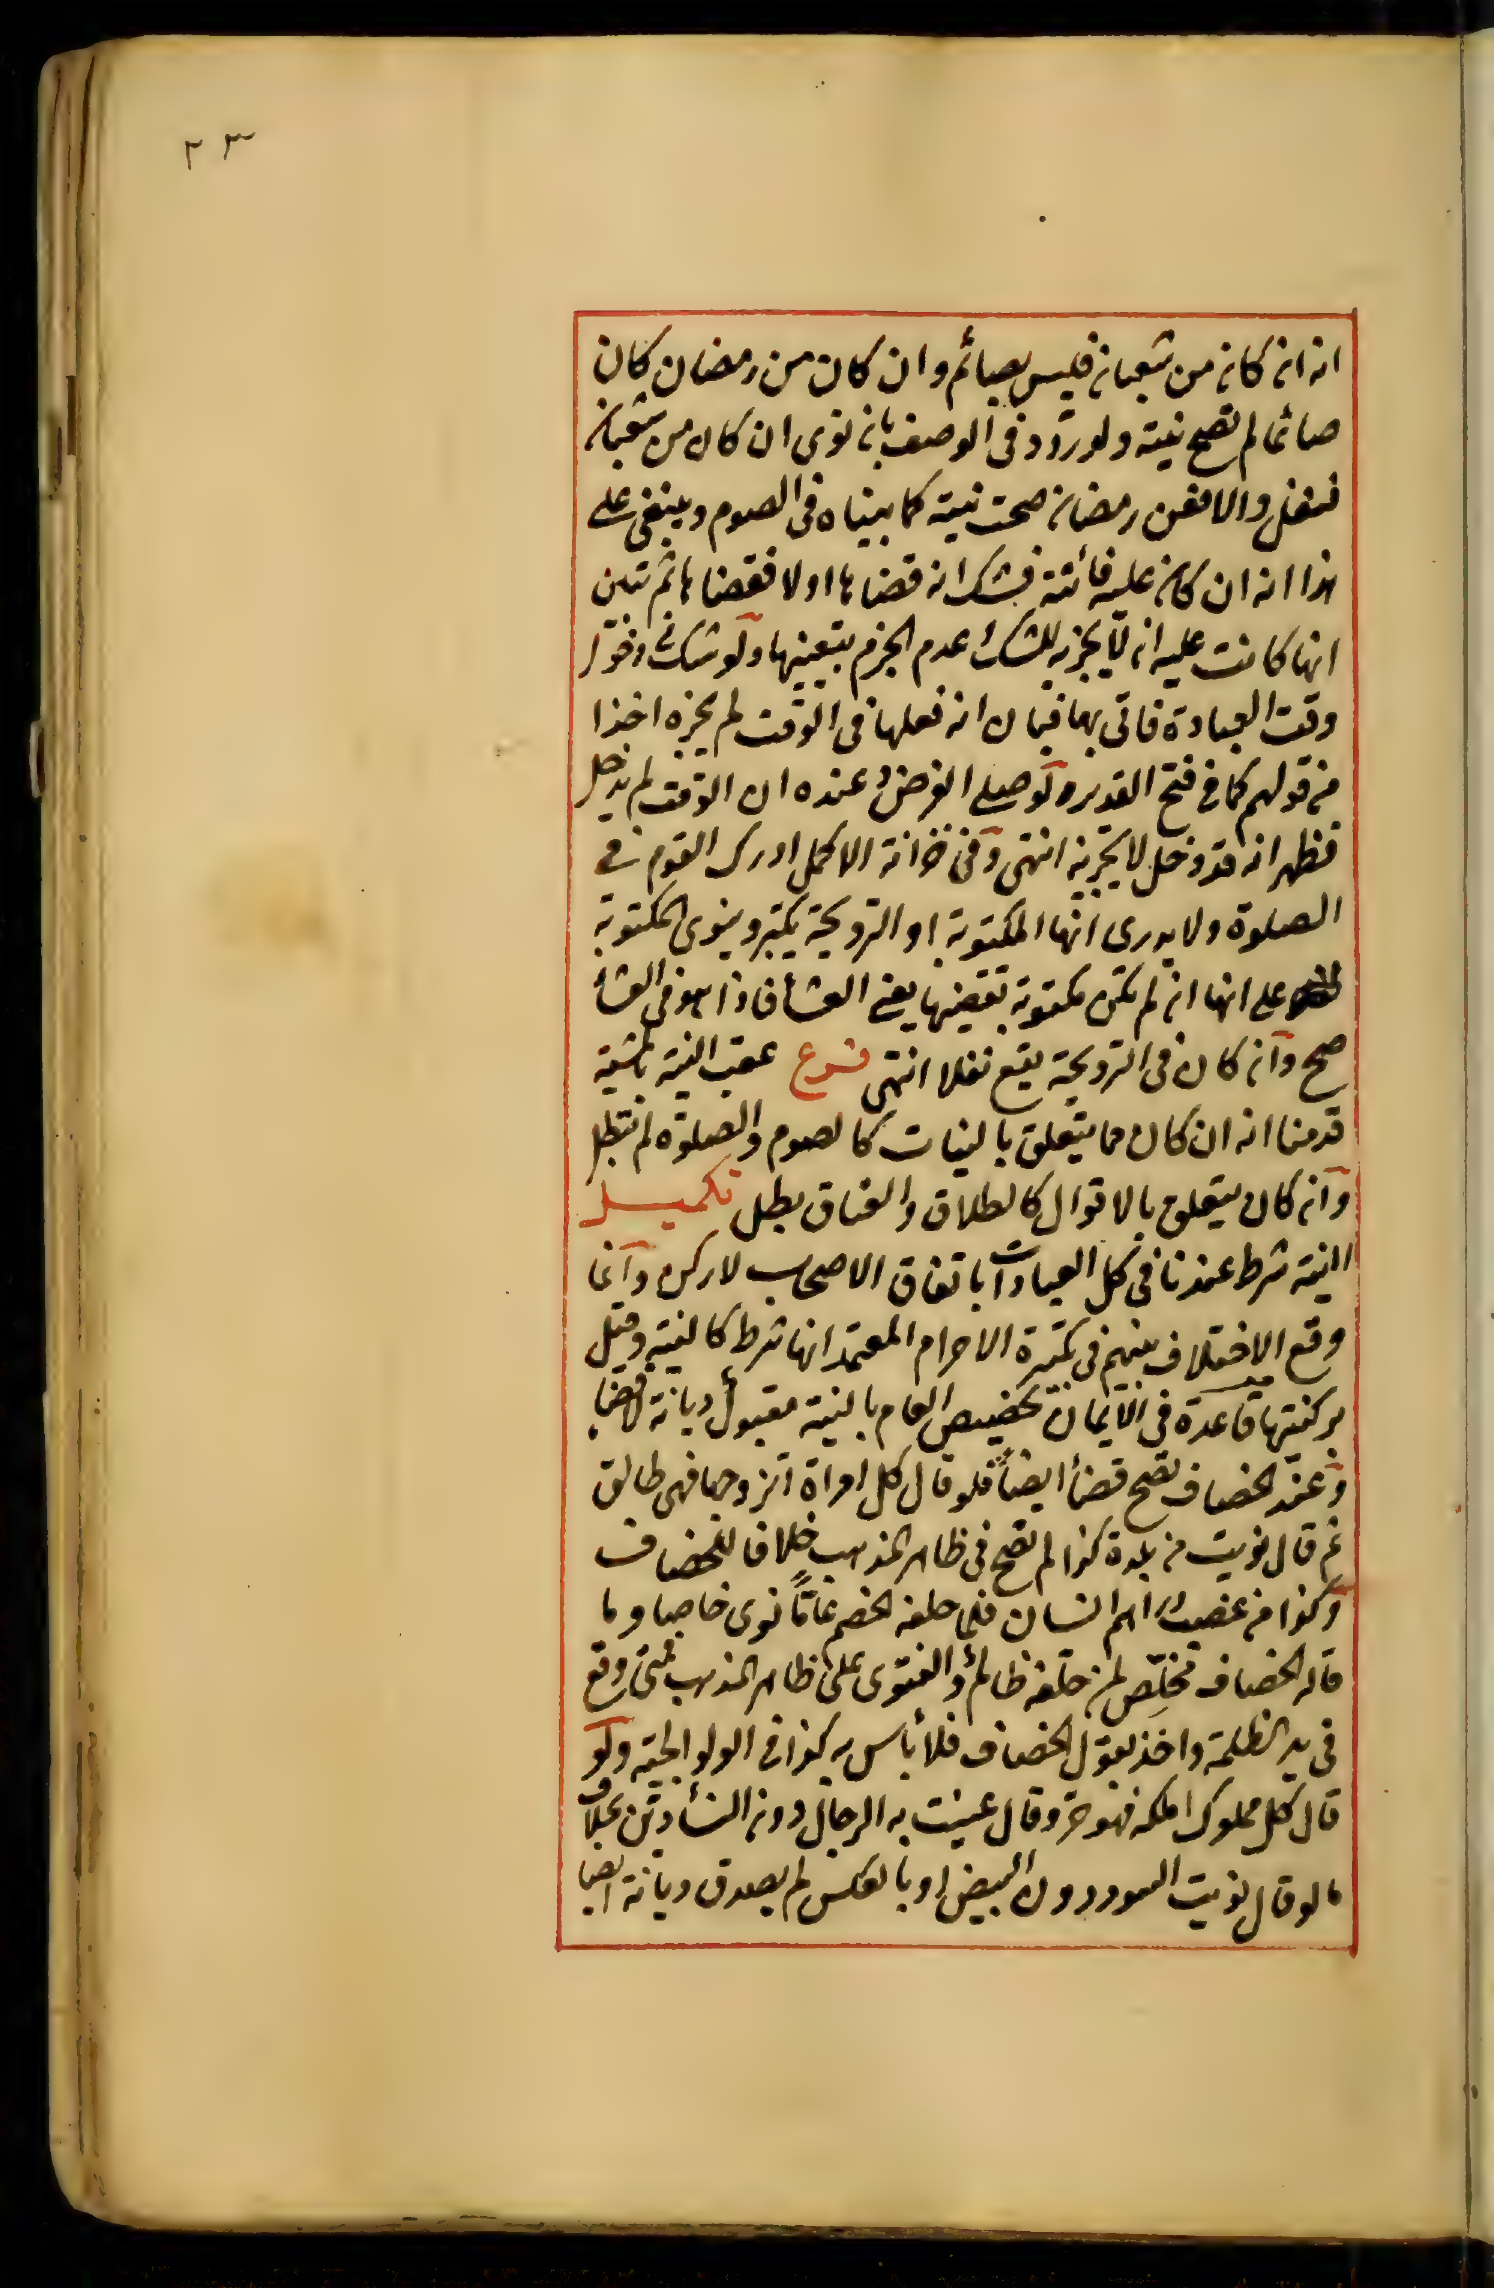 ٢٣
انه ان كان من شعبان فليس بصائم وان كان من رمضان كان
صائما لم تصح نيته ولو ردد في الوصف بان نوى ان كان من شعبان
فنفل والا فعن رمضان صحت نيته كما بيناه في الصوم وينبغي على
هذا انه ان كان عليه فائتة فشك انه قضاها اولا فقضاها ثم تبين
انها كانت عليه انه لا يجزيه للشك عدم الجزم بتعينها ولو شك في دخول
وقت العبادة فاتى بها فبان انه فعلها في الوقت لم يجزه اخذا
من قولهم كما في فتح القدير ولو صلى الفرض وعنده ان الوقت لم يدخل
فظهر انه قد دخل لا يجزيه انتهى وفي خزانة الاكمل ادرك القوم في
الصلوة ولا يدرى انها المكتوبة او الترويحة يكبر وينوى المكتوبة
على انها ان لم تكن مكتوبة تقضيها يعني العشأ فاذا هو في العشأ
صح وان كان في الترويحة يقع نفلا انتهى فرع عقب النية بالمشية
قدمنا انه ان كان مما يتعلق بالنيات كالصوم والصلوة لم تبطل
وان كان يتعلق بالاقوال كالطلاق والعتاق بطل تكميل
النية شرط عندنا في كل العبادات باتفاق الاصحاب لا ركن وانما
وقع الاختلاف بينهم في تكبيرة الاحرام المعتمد انها شرط كالنية وقيل
بركنيتها قاعدة في الايمان تخصيص العام بالنية مقبول ديانة لا قضأ
وعند الخصاف تصح قضأ ايضاً فلو قال كل امراة اتزوجها فهي طالق
ثم قال نويت من بلدة كذا لم تصح في ظاهر المذهب خلافا للخصاف
وكذا من غصب دراهم انسان فلما حلفه الخصم عامًّا نوى خاصا وما
قاله الخصاف مخلِّص لمن حلّفه ظالم والفتوى على ظاهر المذهب فمتى وقع
في يد الظلمة واخذ بقول الخصاف فلا بأس به كذا في الولوالجية ولو
قال كل مملوك املكه فهو حر وقال عنيت به الرجال دون النسأ دين بخلاف
ما لو قال نويت السود دون البيض او بالعكس لم يصدق ديانة ايضا